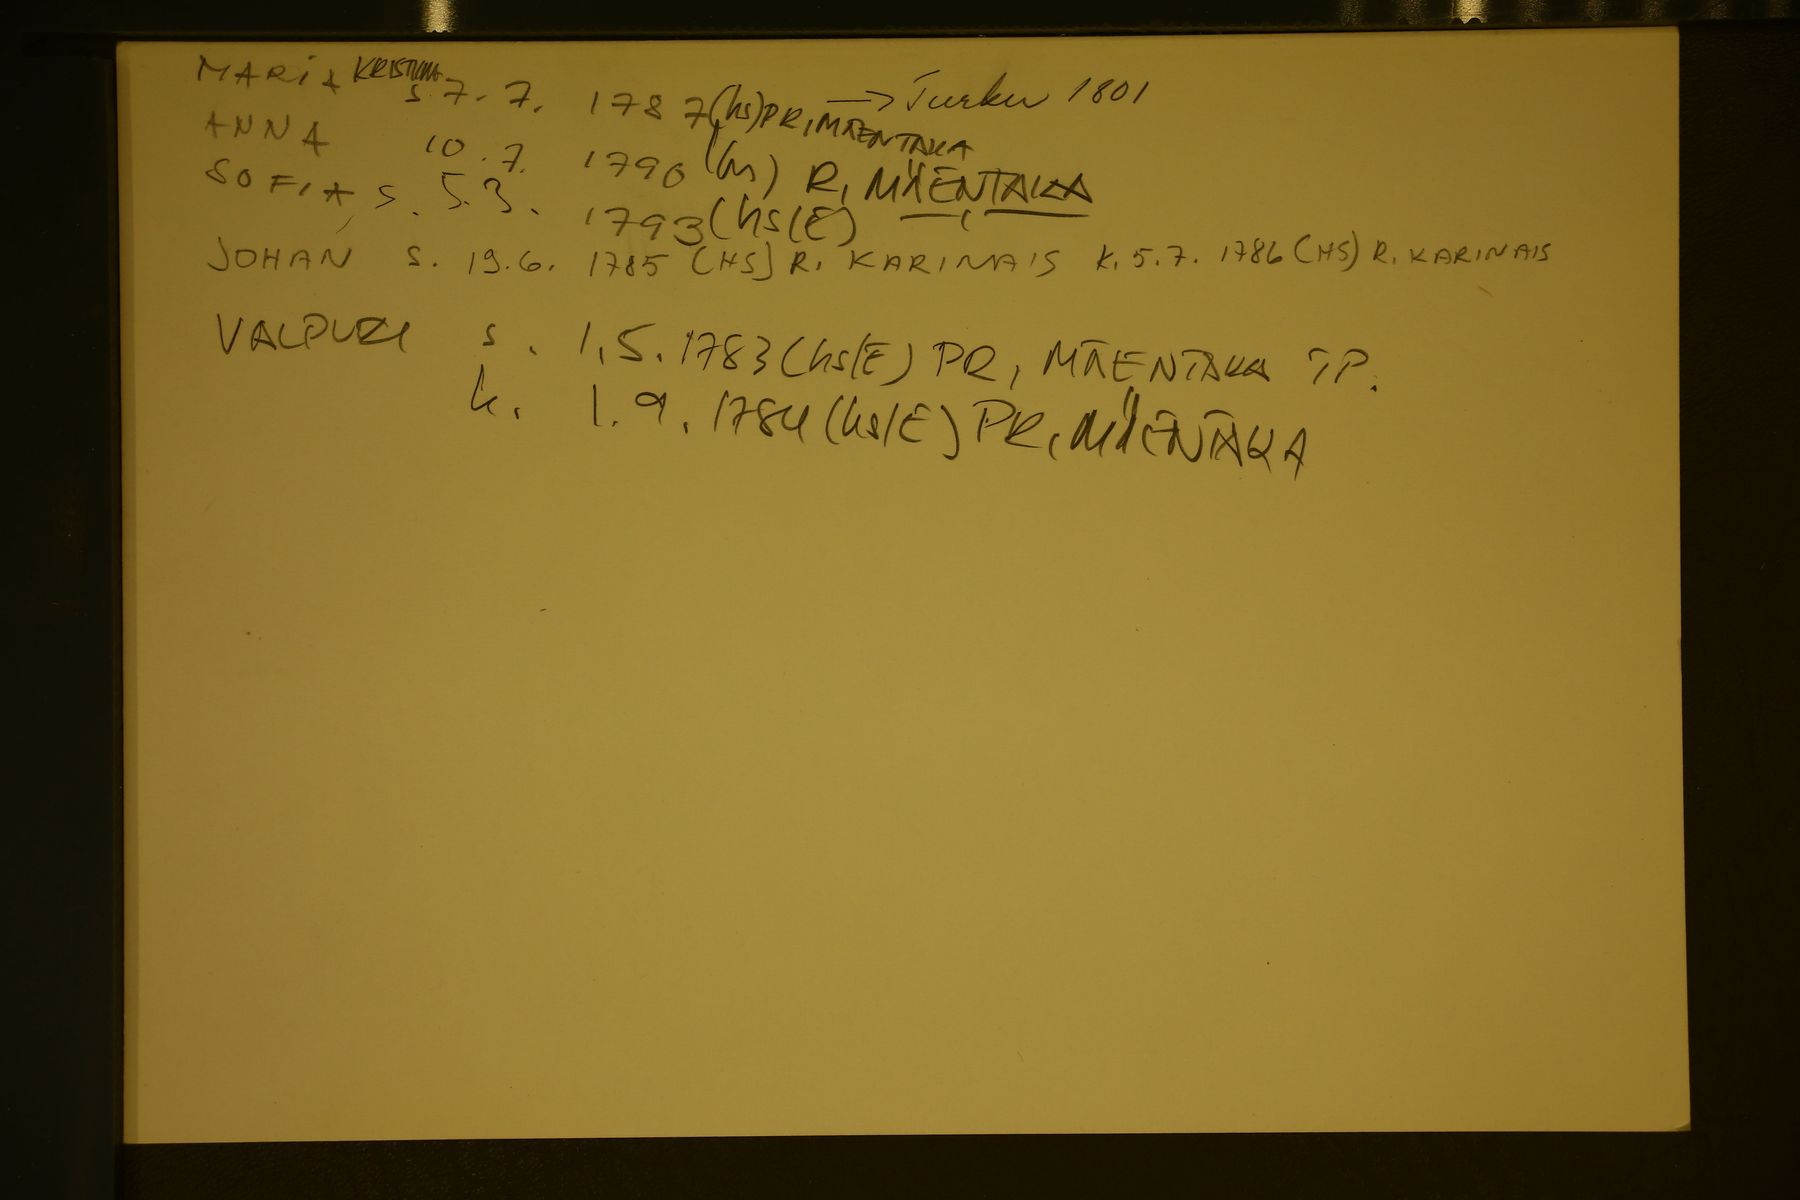 MARIA KRISTIINA s. 7. 7. 1787 (hs) PR, MÄENTAKA → Turku 1801
ANNA 10. 7. 1790 (hs) R, MÄENTAKA
SOFIA, s. 5.3. 1793 (hs/E)
JOHAN s. 19.6. 1785 (HS) R. KARINAIS k. 5.7. 1786 (HS) R. KARINAIS
VALPURI s. 1.5. 1783 (hs/E) PR, MÄENTAKA TP.
k. 1.9. 1784 (hs/E) PR, MÄENTAKA